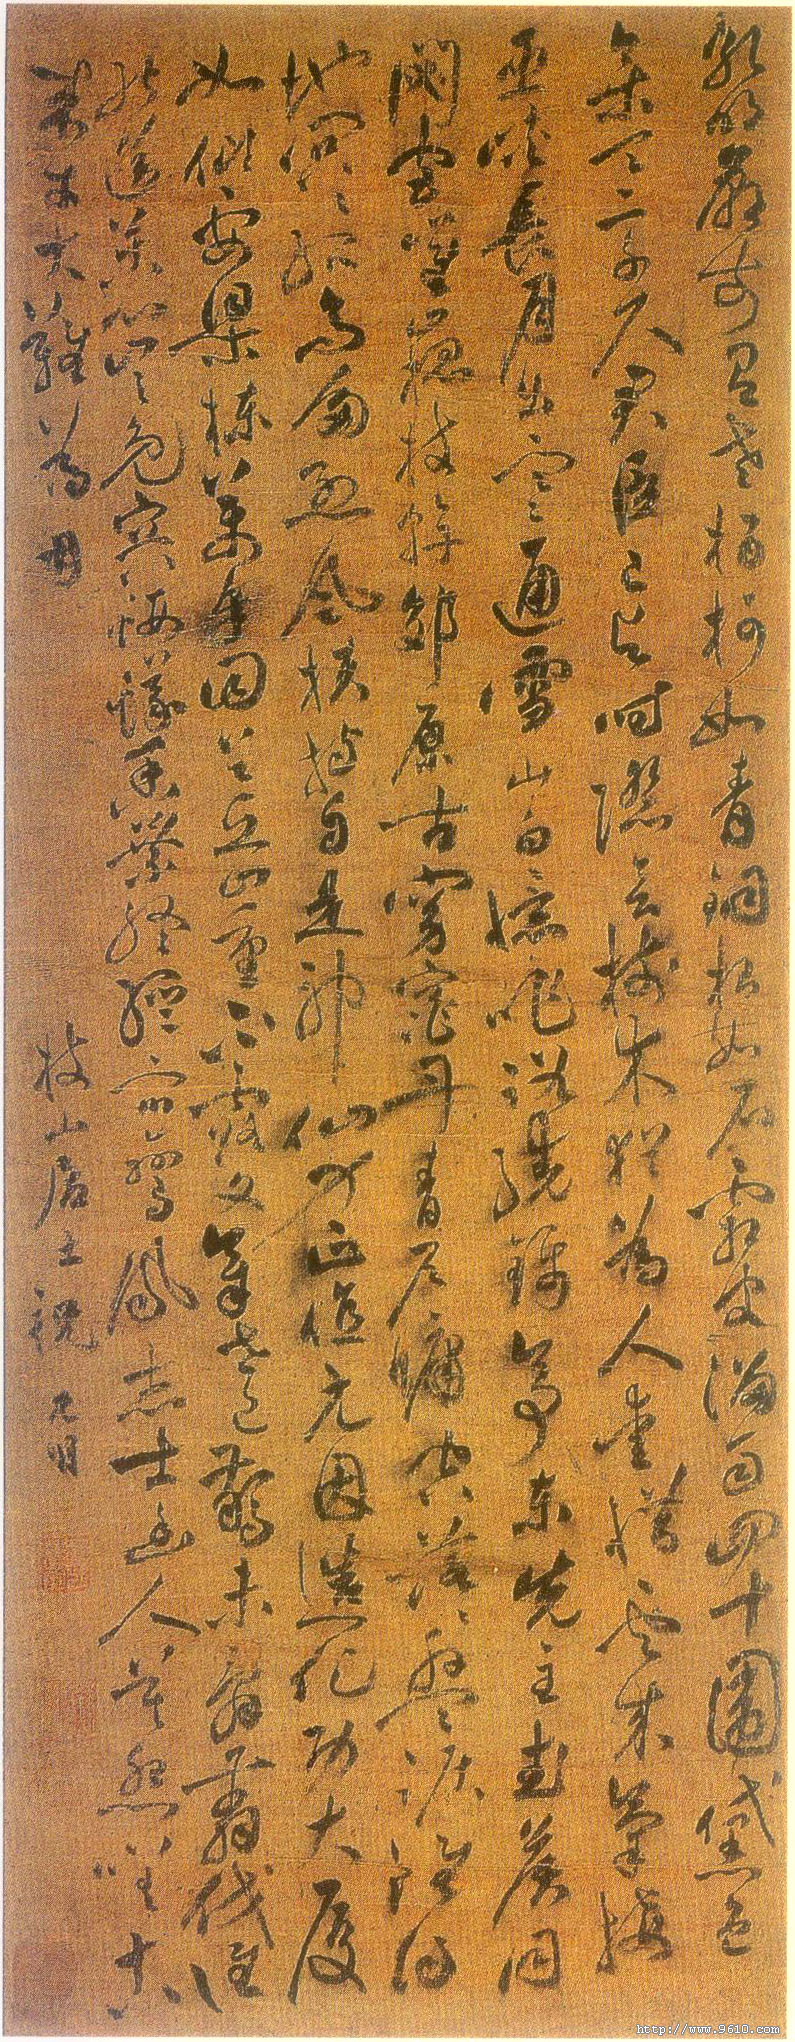 孔明廟前有老柏柯如青銅根如石霜皮溜雨四十圍黛色
參天二千尺君臣已與時際會樹木猶為人愛惜雲來氣接
巫峽長月出寒通雪山白憶昨路繞錦亭東先主武侯同
閟宮崔嵬枝幹郊原古窈窕丹青戶牖空落落盤踞雖得
地冥冥孤高多烈風扶持自是神仙力正直元因造化功大廈
如傾要梁棟萬牛回首丘山重不露文章世已驚未辭翦伐誰
能送苦心豈免容螻蟻香葉終經宿鸞鳳志士幽人莫怨嗟古
來材大難為用
枝山居士祝允明
http://www.9610.com